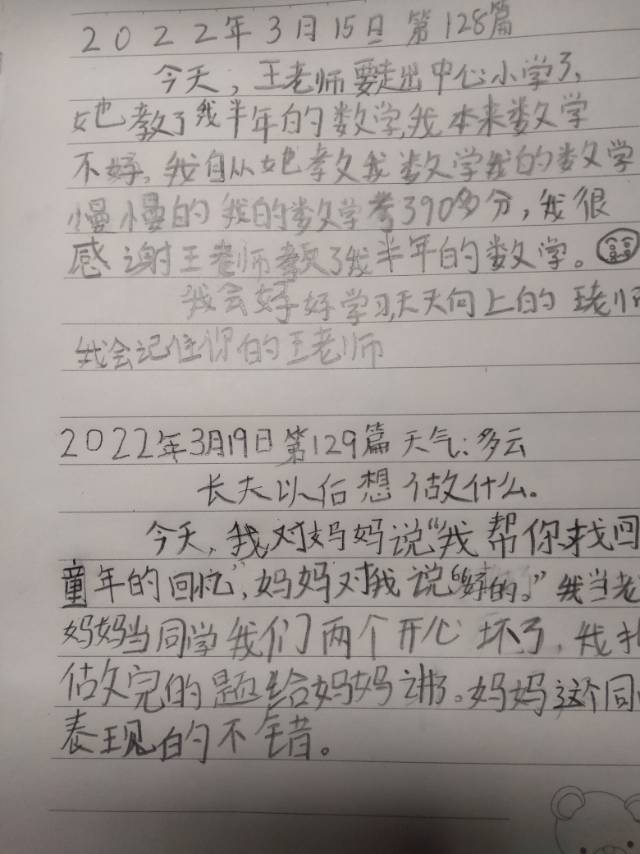 2022年3月15日 第128篇
今天，王老师要走出中心小学了，
她教了我半年的数学，我本来数学
不好，我自从她教我数学我的数学
慢慢的我的数学考了90多分，我很
感谢王老师教了我半年的数学。
我会好好学习，天天向上的 王老师
我会记住你的王老师
2022年3月19日第129篇 天气：多云
长大以后想做什么。
今天，我对妈妈说“我帮你找回
童年的回忆”，妈妈对我说“好的。”我当老
妈妈当同学我们两个开心坏了，我
做完的题给妈妈讲了。妈妈这个同
表现的不错。